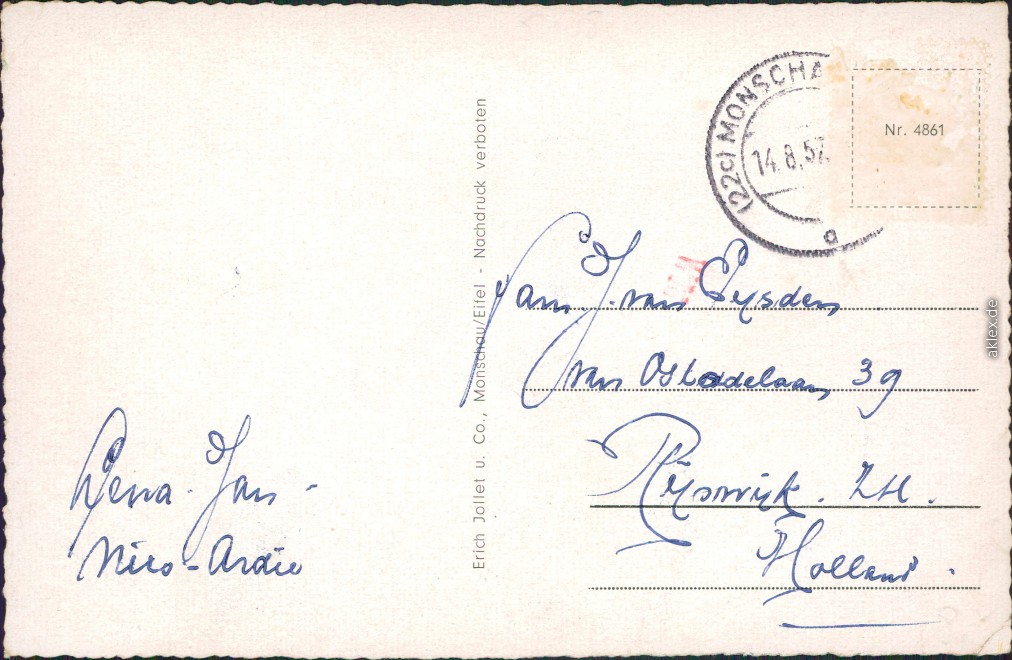 (22c) MONSCHA
14.8.57.
a
Nr. 4861
Erich Jollet u. Co., Monschau/Eifel - Nachdruck verboten
Fam. J. van Eysden
van Ostadelaan 39
Rijswijk. ZH.
Holland.
Jan -
Nico - Ardie
aklex.de